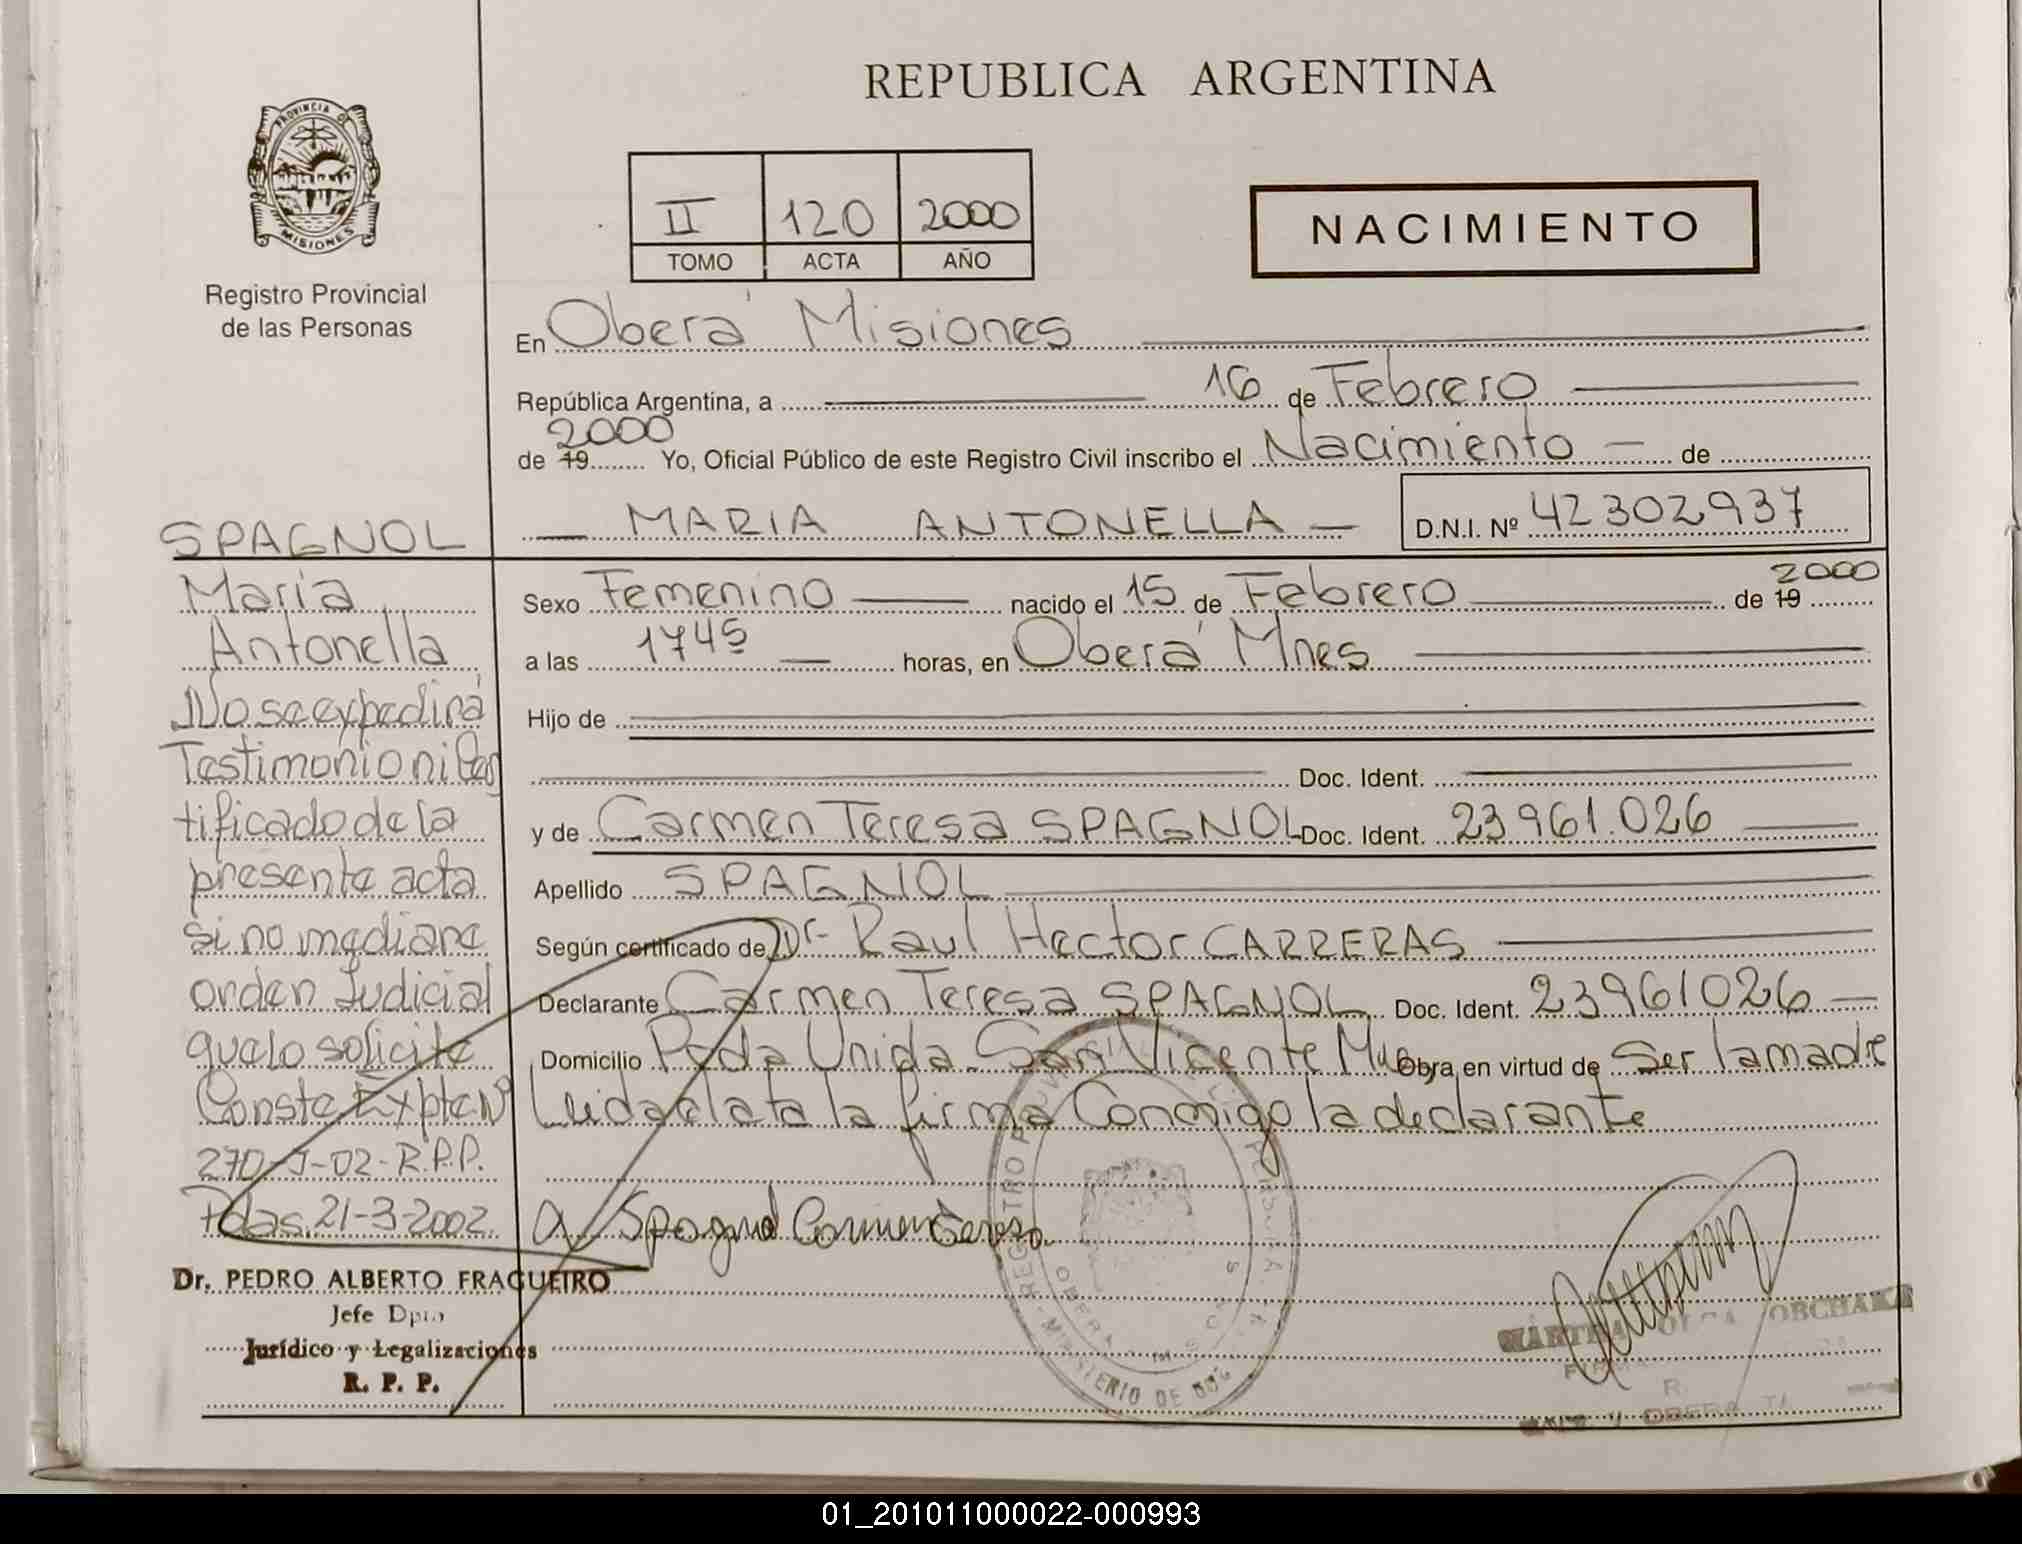 REPUBLICA ARGENTINA
PROVINCIA DE
MISIONES
Registro Provincial
de las Personas
II 120 2000
TOMO ACTA AÑO
NACIMIENTO
En Oberá Misiones
República Argentina, a 16 de Febrero
2000
de 19 Yo, Oficial Público de este Registro Civil inscribo el Nacimiento de
MARIA ANTONELLA D.N.I. Nº 42302937
Sexo Femenino nacido el 15 de Febrero de 19 2000
a las 1745 horas, en Oberá Mnes
Hijo de
Doc. Ident.
y de Carmen Teresa SPAGNOL Doc. Ident. 23961.026
Apellido SPAGNOL
Según certificado de Dr. Raul Hector CARRERAS
Declarante Carmen Teresa SPAGNOL Doc. Ident. 23961026
Domicilio Pcda Unida San Vicente Obra en virtud de Ser la madre
Leida el ata la firma Conmigo la declarante
Spagnol Carmen Teresa
SPAGNOL
María
Antonella
No se expedirá
Testimonio ni Cer
tificado de la
presente acta
si no mediare
orden Judicial
que lo solicite
Conste Expte Nº
270-J-02-R.P.P.
Pdas. 21-3-2002.
Dr. PEDRO ALBERTO FRAGUEIRO
Jefe Dpto
Jurídico y Legalizaciones
R. P. P.
MINISTERIO DE
OBERA
OBERA
01_201011000022-000993